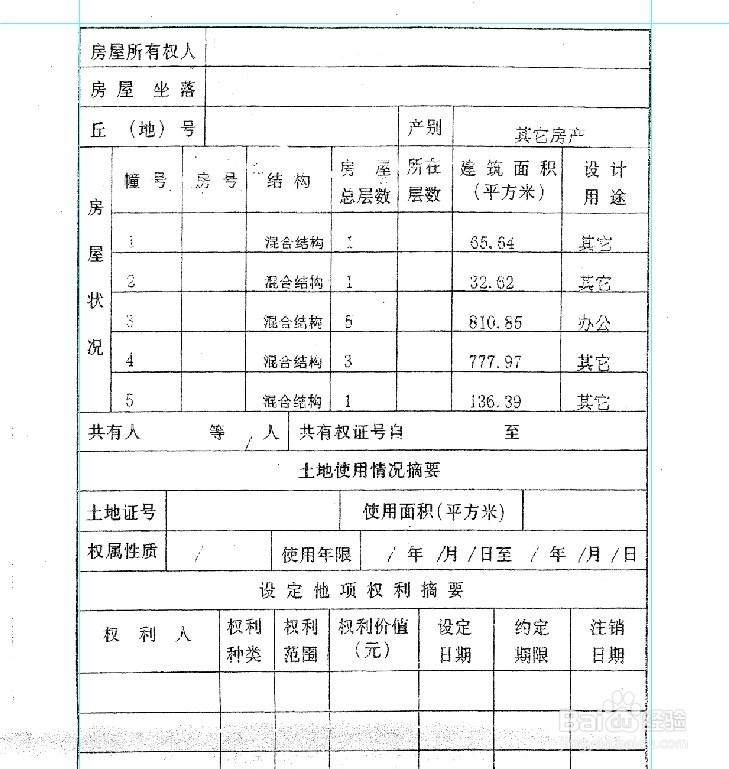 房屋所有权人
房屋 坐落
丘 (地) 号 产别 其它房产
房屋状况
幢号 房号 结构 房屋总层数 所在层数 建筑面积(平方米) 设计用途
1 混合结构 1 65.64 其它
2 混合结构 1 32.62 其它
3 混合结构 5 810.85 办公
4 混合结构 3 777.97 其它
5 混合结构 1 136.39 其它
共有人 等 / 人 共有权证号自 至
土地使用情况摘要
土地证号 使用面积(平方米)
权属性质 / 使用年限 / 年 /月 /日至 / 年 /月 /日
设定他项权利摘要
权利人 权利种类 权利范围 权利价值(元) 设定日期 约定期限 注销日期
Baidu经验